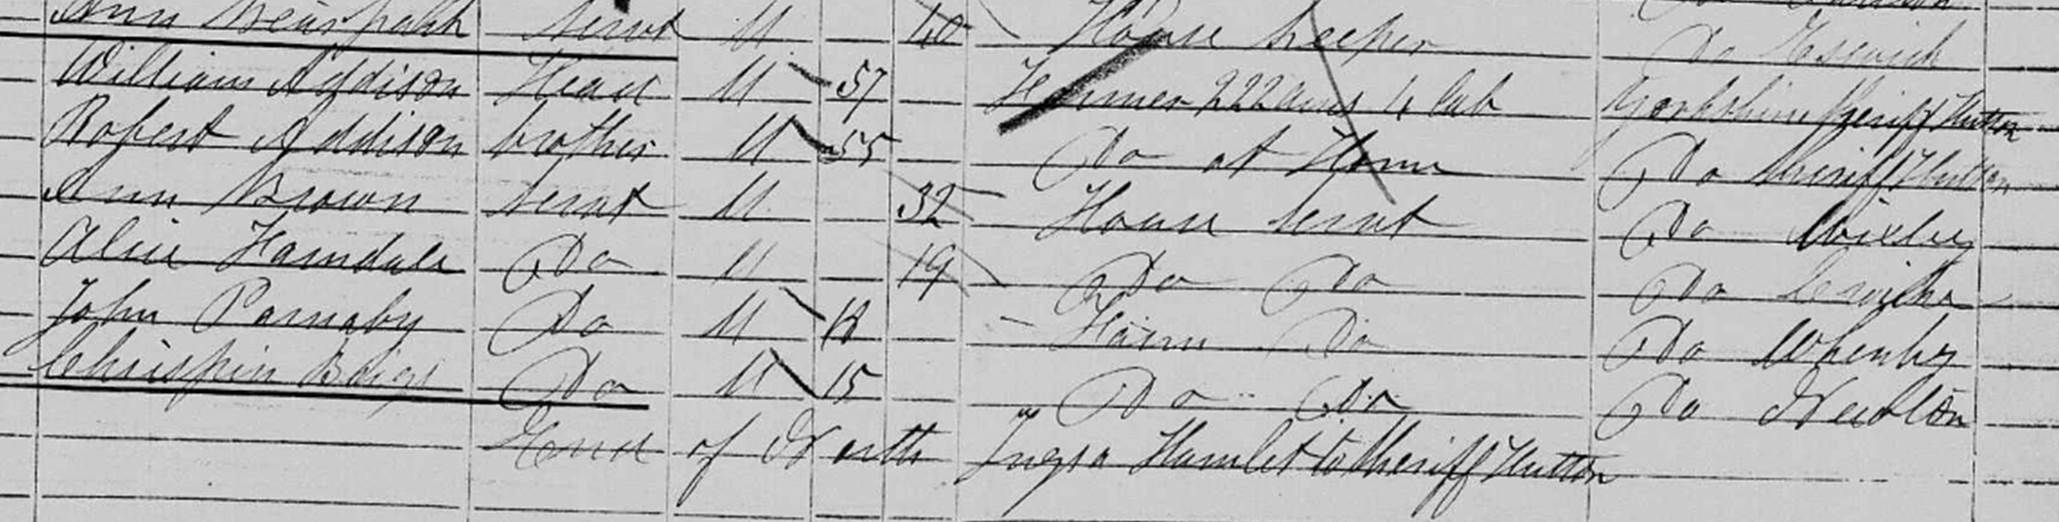 Ann servt U 40 House keeper Do
William Addison Head U 57 Farmer 222 acres 4 lab Yorkshire Sheriff Hutton
Robert Addison brother U 55 Do at Home Do Sheriff Hutton
Ann Brown servt U 32 House servt Do
Alice Farndale Do U 19 Do Do Do
John Parnaby Do U 18 Farm Do Do Whenby
Chrispin Do U 15 Do Do Do Newton
End of North Ings a Hamlet to Sheriff Hutton